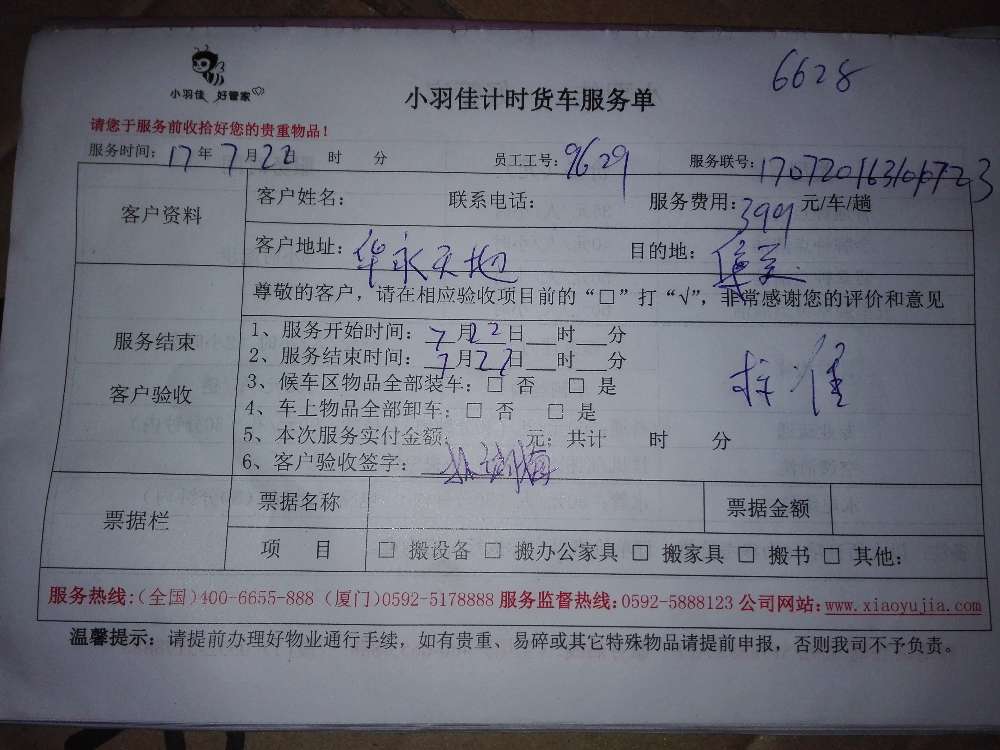 6628
小羽佳 好管家
小羽佳计时货车服务单
请您于服务前收拾好您的贵重物品！
服务时间：17年7月22 时 分 员工工号：9629 服务联号：
客户资料
客户姓名： 联系电话： 服务费用：399元/车/趟
客户地址：华永天地 目的地：集美
服务结束
客户验收
尊敬的客户，请在相应验收项目前的“□”打“√”，非常感谢您的评价和意见
1、服务开始时间：7月22日__时__分
2、服务结束时间：7月22日__时__分
3、候车区物品全部装车：□ 否 □ 是
4、车上物品全部卸车：□ 否 □ 是
5、本次服务实付金额： 元；共计 时 分
6、客户验收签字：
票据栏
票据名称 票据金额
项 目 □ 搬设备 □ 搬办公家具 □ 搬家具 □ 搬书 □ 其他：
服务热线：（全国）400-6655-888（厦门）0592-5178888 服务监督热线：0592-5888123 公司网站：www.xiaoyujia.com
温馨提示：请提前办理好物业通行手续，如有贵重、易碎或其它特殊物品请提前申报，否则我司不予负责。